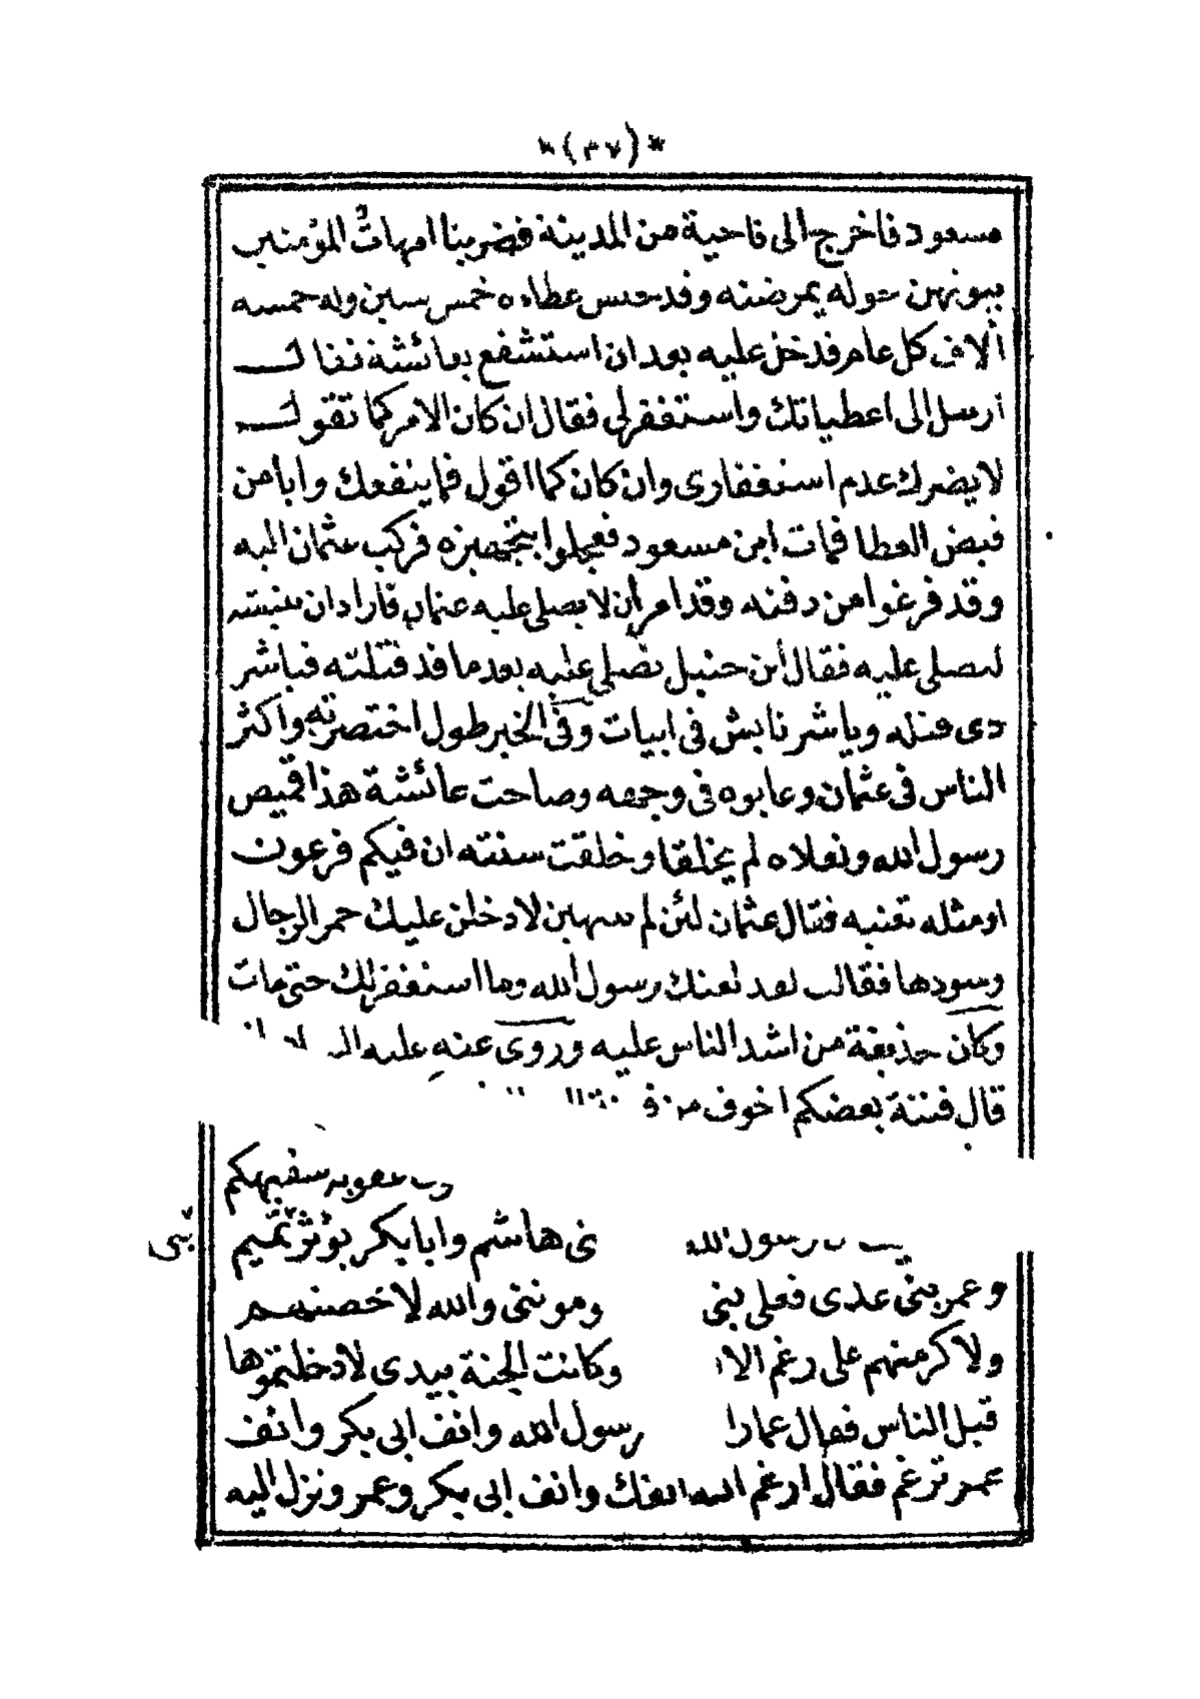 *(٣٧)*
مسعود فاخرج الى ناحية من المدينة فضر بنا امهات المؤمنين
بيوتهن حوله يمرضنه وقد حبس عطاءه خمس سنين وله خمسه
آلاف كل عام فدخل عليه بعد ان استشفع بعائشة فقال
ارسل الى اعطياتك واستغفر لى فقال ان كان الامر كما تقول
لا يضرك عدم استغفارى وان كان كما اقول فما ينفعك وابا من
قبض العطا فمات ابن مسعود فعجلوا بتجهيزه فركب عثمان اليه
وقد فرغوا من دفنه وقد امر ان لا يصلى عليه عثمان فاراد ان ينبشه
ليصلى عليه فقال ابن حنبل تصلى عليه بعد ما قد قتلته فباشر
دى قتله وياشر نابش فى ابيات وفى الخبر طول اختصرته واكثر
الناس فى عثمان وعابوه فى وجهه وصاحت عائشة هذا قميص
رسول الله ونعلاه لم يخلقا وخلقت سنته ان فيكم فرعون
او مثله تعنيه فقال عثمان لئن لم تنتهين لادخلن عليك حمر الرجال
وسودها فقالت لعد لعنك رسول الله وما استغفر لك حتى مات
وكان حذيفة من اشد الناس عليه وروى عنه عليه
قال فتنة بعضكم اخوف من
سفيهكم
رسول الله نى هاشم وابا بكر يؤثر تميم بنى
وعمر بنى عدى فعلى بنى ومو نننى والله لاخصنهم
ولاكرمنهم على رغم وكانت الجنة بيدى لادخلتموها
قبل الناس فقال عمار رسول الله وانف ابى بكر وانف
عمر ترغم فقال ارغم الله انفك وانف ابى بكر وعمر ونزل اليه